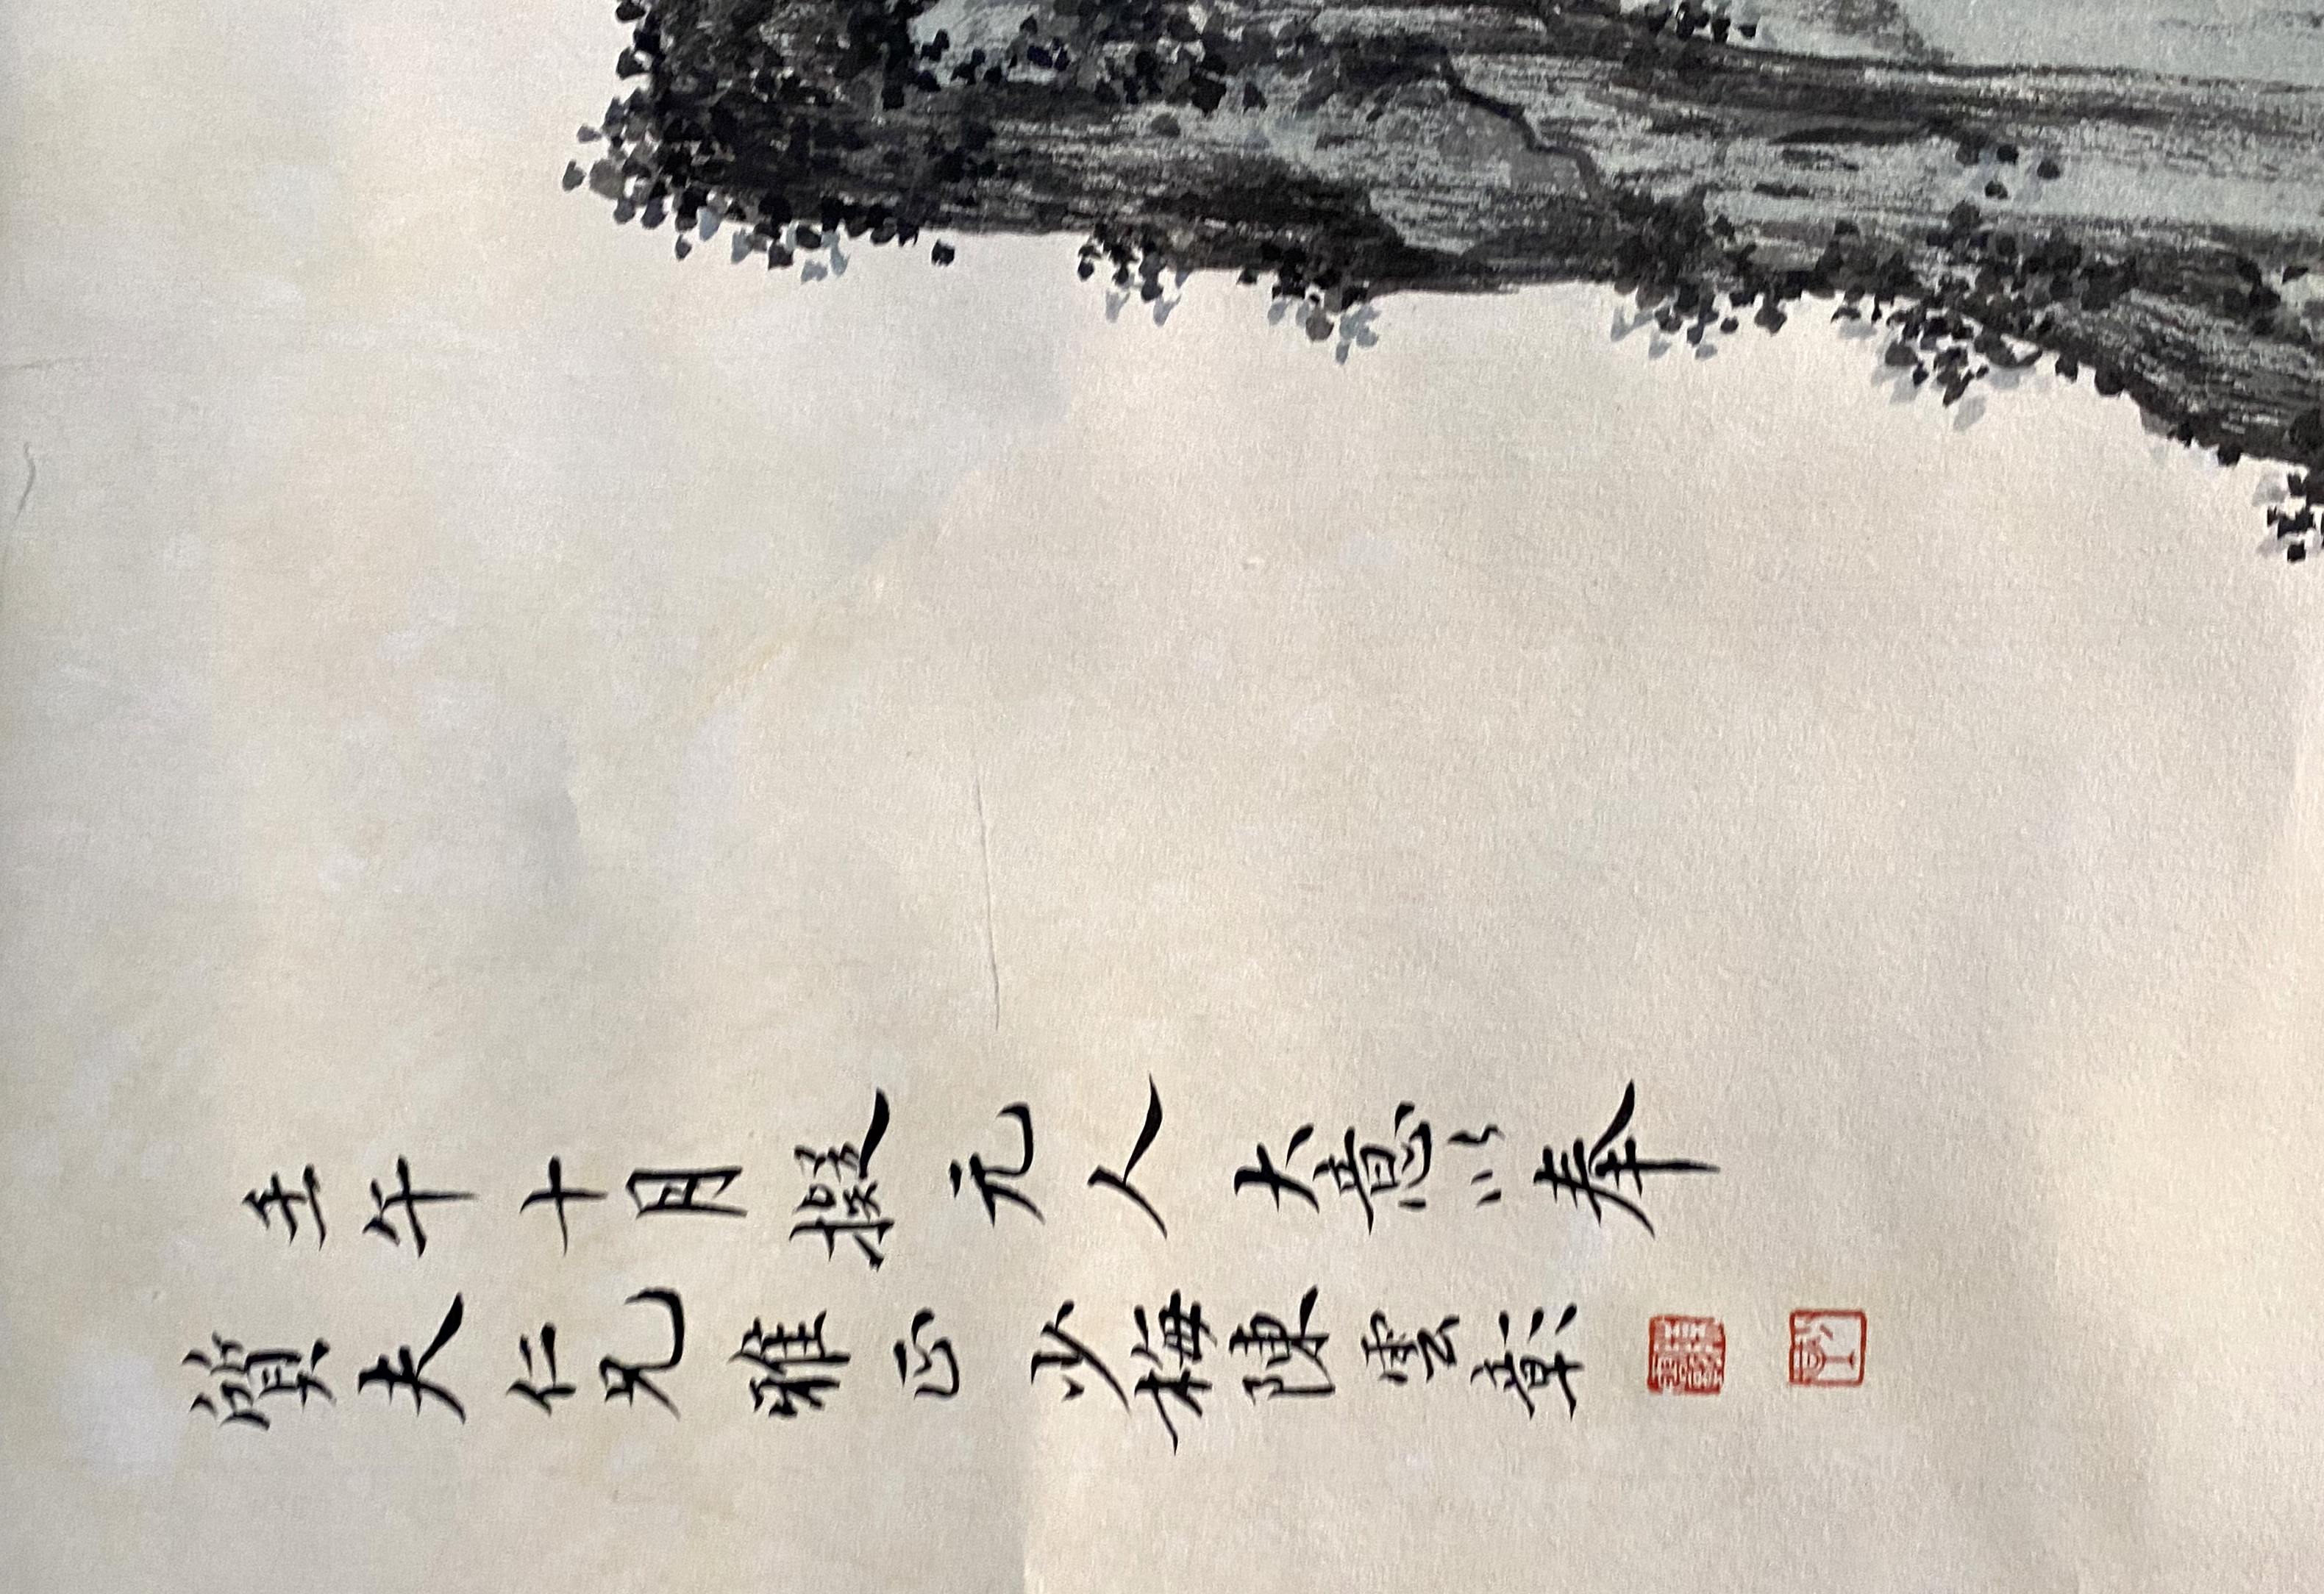 壬午十月擬元人大意以奉
夫仁兄雅正少梅陳雲彰